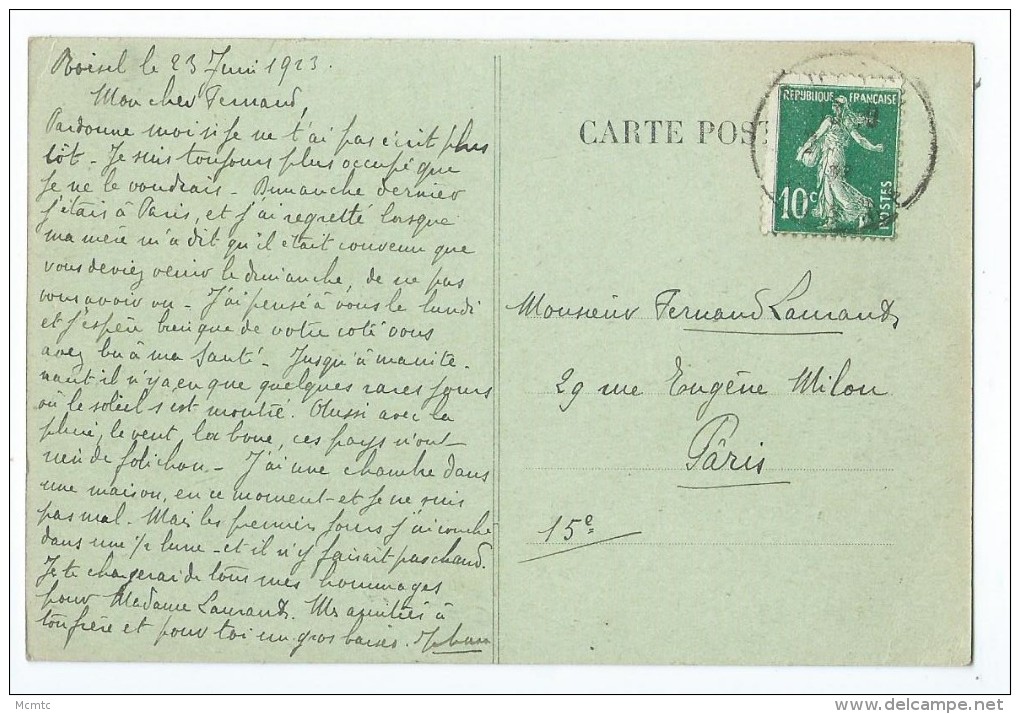 Boisel le 23 Juin 1923.
Mon cher Fernand,
Pardonne moi si je ne t'ai pas écrit plus
tôt - Je suis toujours plus occupé que
je ne le voudrais - Dimanche dernier
j'étais à Paris, et j'ai regretté lorsque
ma mère m'a dit qu'il était convenu que
vous deviez venir le dimanche, de ne pas
vous avoir vu - J'ai pensé à vous le lundi
et j'espère bien que de votre coté vous
avez bu à ma santé - Jusqu'à mainte-
nant il n'y a eu que quelques rares jours
où le soleil s'est montré. Aussi avec la
pluie, le vent la boue, ces pays n'ont
rien de folichon - J'ai une chambre dans
une maison, en ce moment - et je ne suis
pas mal - Mais les premiers jours j'ai couché
dans une 1/2 lune - et il n'y faisait pas chaud.
Je te chargerai de tous mes hommages
pour Madame Laurand. Mes amitiés à
ton frère et pour toi un gros baiser.
CARTE POST
REPUBLIQUE FRANÇAISE
10c
POSTES
Monsieur Fernand Laurand
29 rue Eugène Milon
Pâris
15e
Mcmtc
www.delcampe.net